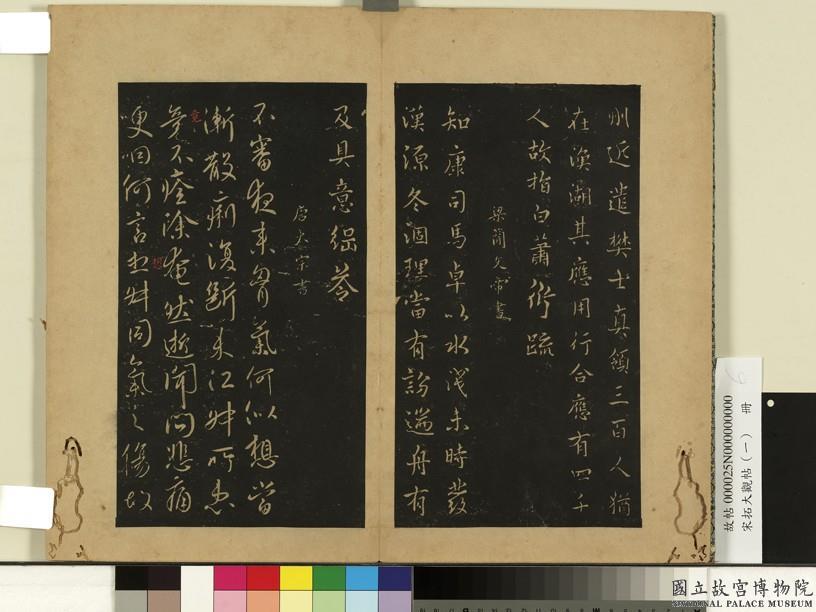 州近遣樊士真領三百人猶
在漢湖其應用行合應有四千
人故指白蕭衍疏
梁簡文帝書
知康司馬卓以水淺未時發
漢源冬涸理當有訪遏舟有
及具意綱答
唐太宗書
不審夜來胃氣何似想當
漸散痢復斷未江妹所患
竟不痊除奄然逝聞問悲痛
哽咽何言妹同氣之傷故
故帖000025N000000000
宋拓大觀帖（一） 冊
國立故宮博物院
NATIONAL PALACE MUSEUM